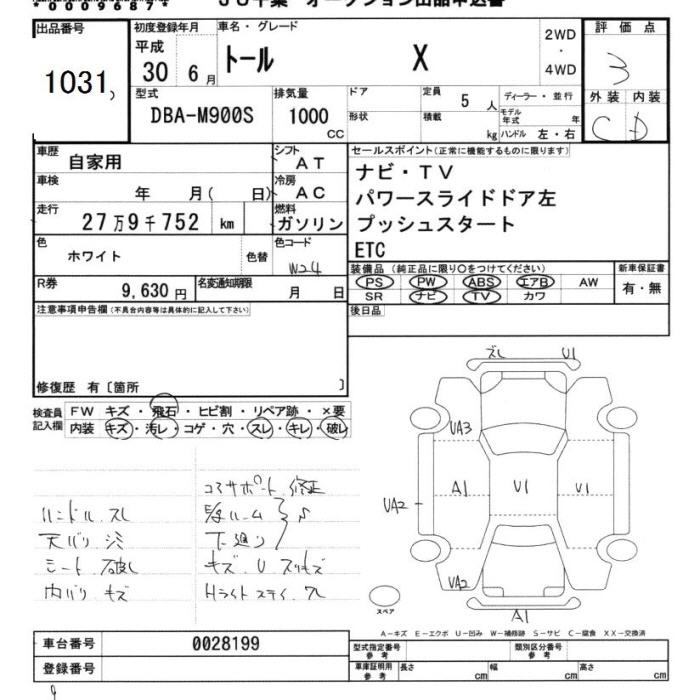 *0009687*
JU千葉 オークション出品申込書
出品番号
1031
初度登録年月
平成
30 6 月
車名・グレード
トール X
2WD
・
4WD
評価点
3
外装 内装
C D
型式
DBA-M900S
排気量
1000
CC
ドア
形状
定員
5 人
積載
kg
ディーラー・並行
モデル年式 年
ハンドル 左・右
車歴
自家用
シフト
AT
車検
年 月( 日)
冷房
AC
走行
27万9千752 km
燃料
ガソリン
色
ホワイト
色替
色コード
W24
R券
9,630 円
名変通知期限
月 日
セールスポイント(正常に機能するものに限ります)
ナビ・TV
パワースライドドア左
プッシュスタート
ETC
装備品(純正品に限り○をつけてください)
PS PW ABS エアB AW
SR ナビ TV カワ
新車保証書
有・無
後日品
注意事項申告欄(不具合内容等は具体的に記入して下さい)
修復歴 有〔箇所 〕
検査員記入欄
FW キズ・飛石・ヒビ割・リペア跡・×要
内装 キズ・汚レ・コゲ・穴・スレ・キレ・破レ
コアサポート 修正
ハンドル スレ
下廻り
シート 破レ
内バリ キズ
キズ U スリキズ
Hライト
ズレ U1
UA3
A1 U1 U1
UA2
UA2
A1
スペア
A-キズ E-エクボ U-凹み W-補修跡 S-サビ C-腐食 XX-交換済
車台番号
0028199
登録番号
型式指定番号
参考
類別区分番号
参考
車庫証明用
参考
長さ cm 幅 cm 高さ cm